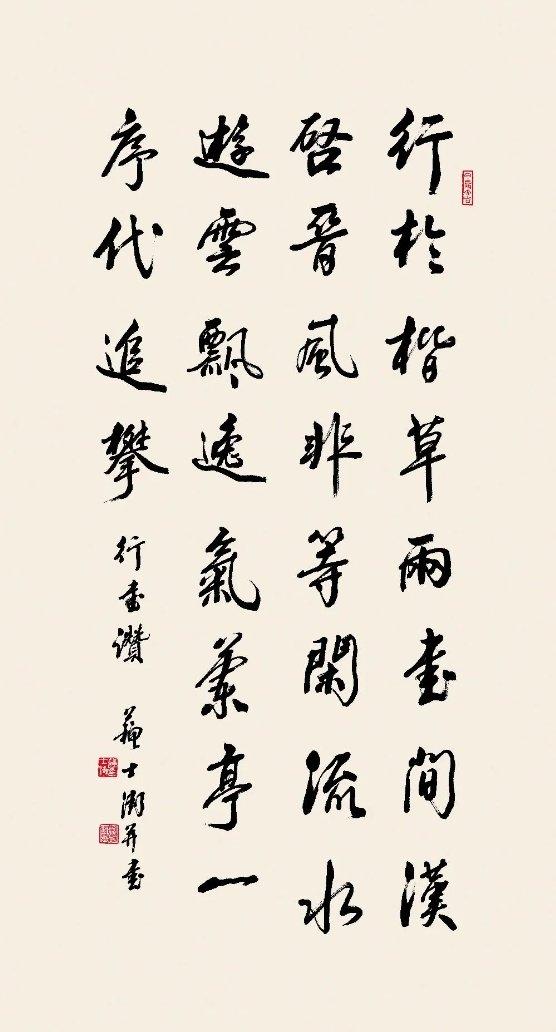 行於楷草兩書間漢
啓晉風非等閑流水
遊雲飄逸氣蘭亭一
序代追攀
行書讚
蘇士澍并書